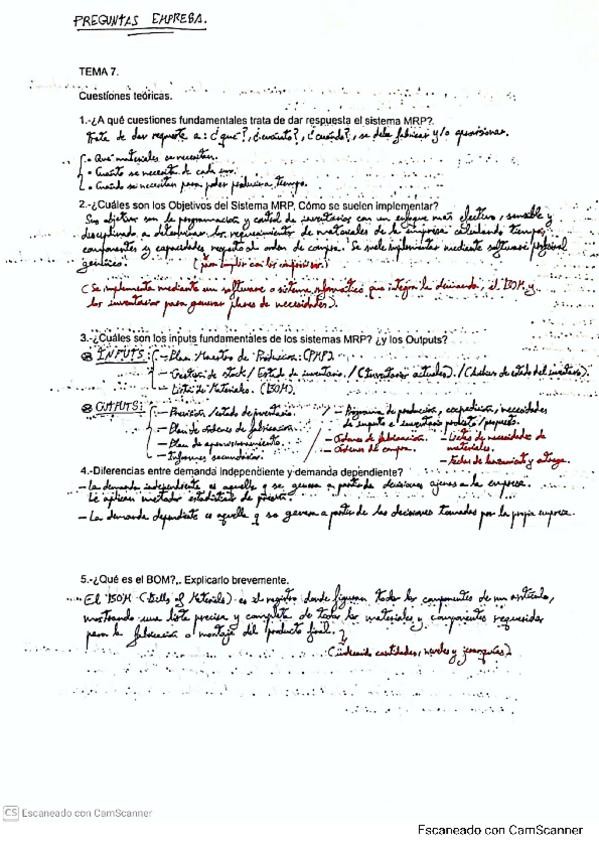 PREGUNTAS EMPRESA.
TEMA 7.
Cuestiones teóricas.
1.-¿A qué cuestiones fundamentales trata de dar respuesta el sistema MRP?.
Trata de dar respuesta a: ¿qué?, ¿cuánto?, ¿cuándo?, se debe fabricar y/o aprovisionar.
• Qué materiales se necesitan.
• Cuánto se necesita de cada uno.
• Cuándo se necesitan para poder producir a tiempo.
2.-¿Cuáles son los Objetivos del Sistema MRP, Cómo se suelen implementar?
Sus objetivos son la programación y control de inventarios con un enfoque más efectivo, sensible y
disciplinado a determinar los requerimientos de materiales de la empresa calculando tiempos,
componentes y capacidades respecto al orden de compra. Se suele implementar mediante software
genérico.
(Se implementa mediante un software o sistema informático que integra la demanda, el BOM y
los inventarios para generar planes de necesidades).
3.-¿Cuáles son los inputs fundamentales de los sistemas MRP? ¿y los Outputs?
INPUTS: - Plan Maestro de Producción: (PMP).
- Gestión de stock / Estado de inventario. / (Inventarios actuales). / (Ficheros de estado del inventario).
- Lista de Materiales. (BOM).
OUTPUTS: - Previsión / estado de inventario. / - Programa de producción, necesidades
- Plan de órdenes de fabricación. de compra e inventario
- Plan de aprovisionamiento. / - Órdenes de fabricación. - Listas de necesidades de
- Informes secundarios. / - Órdenes de compra. materiales.
- Fechas de lanzamiento y entrega.
4.-Diferencias entre demanda independiente y demanda dependiente?
- La demanda independiente es aquella y se genera a partir de decisiones ajenas a la empresa.
Se aplican métodos estadísticos de previsión.
- La demanda dependiente es aquella q se genera a partir de las decisiones tomadas por la propia empresa.
5.-¿Qué es el BOM?,. Explicarlo brevemente.
El BOM (Bills of Materials) es el registro donde figuran todos los componentes de un artículo,
mostrando una lista precisa y completa de todos los materiales y componentes requeridos
para la fabricación o montaje del producto final.
(indicando cantidades, niveles y jerarquías)
CS Escaneado con CamScanner
Escaneado con CamScanner